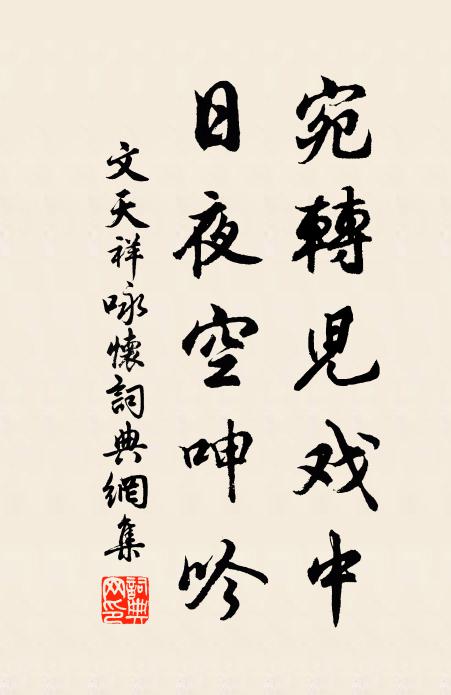 宛轉兒戏中
日夜空呻吟
文天祥咏懷詞典網集
詞典網印